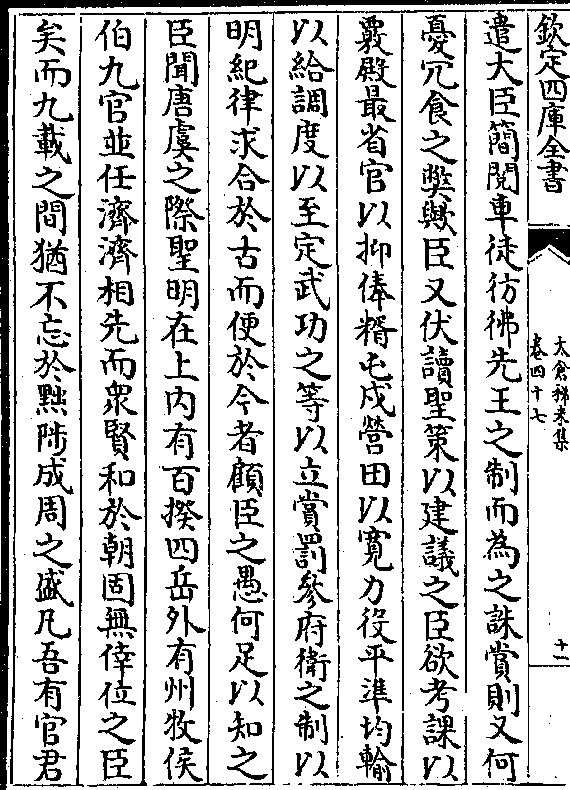 欽定四庫全書
太倉稊米集
卷四十七
十一
遣大臣簡閱車徒彷彿先王之制而為之誅賞則又何
憂冗食之獘歟臣又伏讀聖策以建議之臣欲考課以
覈殿最省官以抑俸糈屯戍營田以寛力役平準均輸
以給調度以至定武功之等以立賞罰參府衛之制以
明紀律求合於古而便於今者顧臣之愚何足以知之
臣聞唐虞之際聖明在上内有百揆四岳外有州牧侯
伯九官並任濟濟相先而衆賢和於朝固無倖位之臣
矣而九載之間猶不忘於黜陟成周之盛凡吾有官君